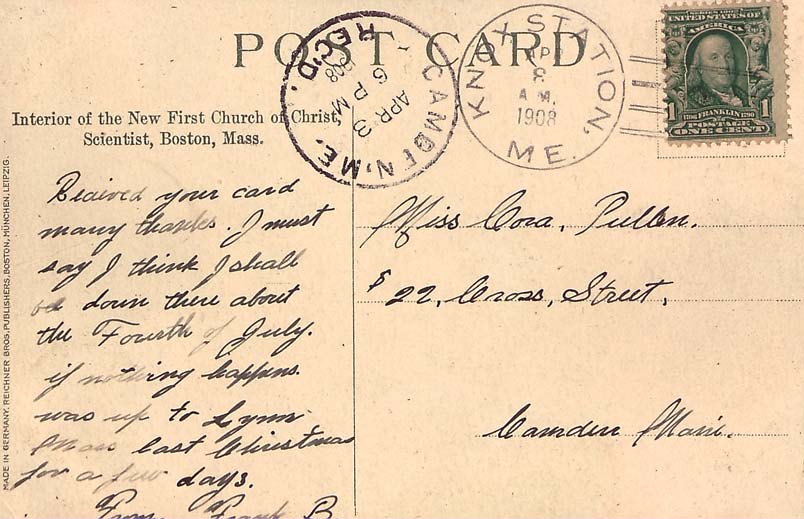 POST CARD
Interior of the New First Church of Christ,
Scientist, Boston, Mass.
MADE IN GERMANY. REICHNER BROS. PUBLISHERS, BOSTON, MÜNCHEN, LEIPZIG.
REC'D.
CAMDEN, ME.
APR 3
6 PM
1908
KNOX STATION,
AP
8
A.M.
1908
ME.
SERIES 1902
UNITED STATES OF
AMERICA
1706 FRANKLIN 1790
1 1
POSTAGE
ONE CENT
Recived your card
many thanks. I must
say I think I shall
be down there about
the Fourth of July.
if nothing happens.
was up to Lynn
Mass last Christmas
for a few days.
From Frank B.
Miss Cora, Pullen.
22, Cross, Street,
Camden Maine.